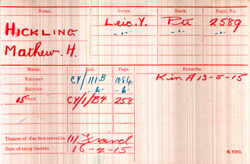 Name. Corps. Rank. Regtl. No.
HICKLING Leic. Y. Pte 2589
Mathew. H. -"- -"-
Medal. Roll. Page. Remarks.
VICTORY CY/111.B K in A 13-5-15
BRITISH -"- -"-
15 STAR CY/1/B4 258
Theatre of War first served in (1) France
Date of entry therein 16-2-15
K 1380.